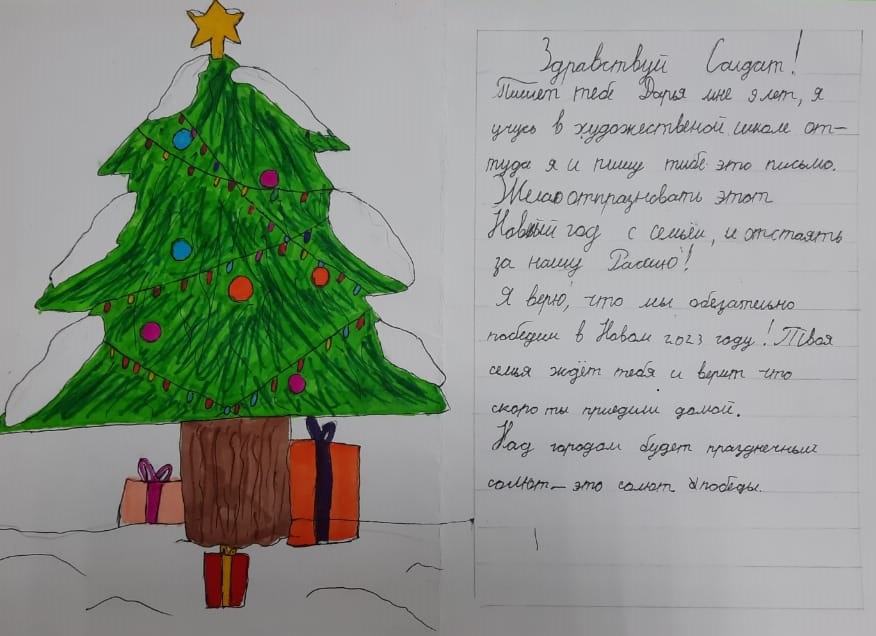 Здравствуй Солдат!
Пишет тебе Дарья мне 9 лет, я
учусь в художественой школе от-
туда я и пишу тибе это письмо.
Желаю отпразновать этот
Новый год с семьёй, и отстоять
за нашу Рассию!
Я верю, что мы обезательно
победим в Новом 2023 году! Твоя
семья ждёт тебя и верит что
скоро ты приедиш домой.
Над городом будет празднечный
солют- это солют победы.